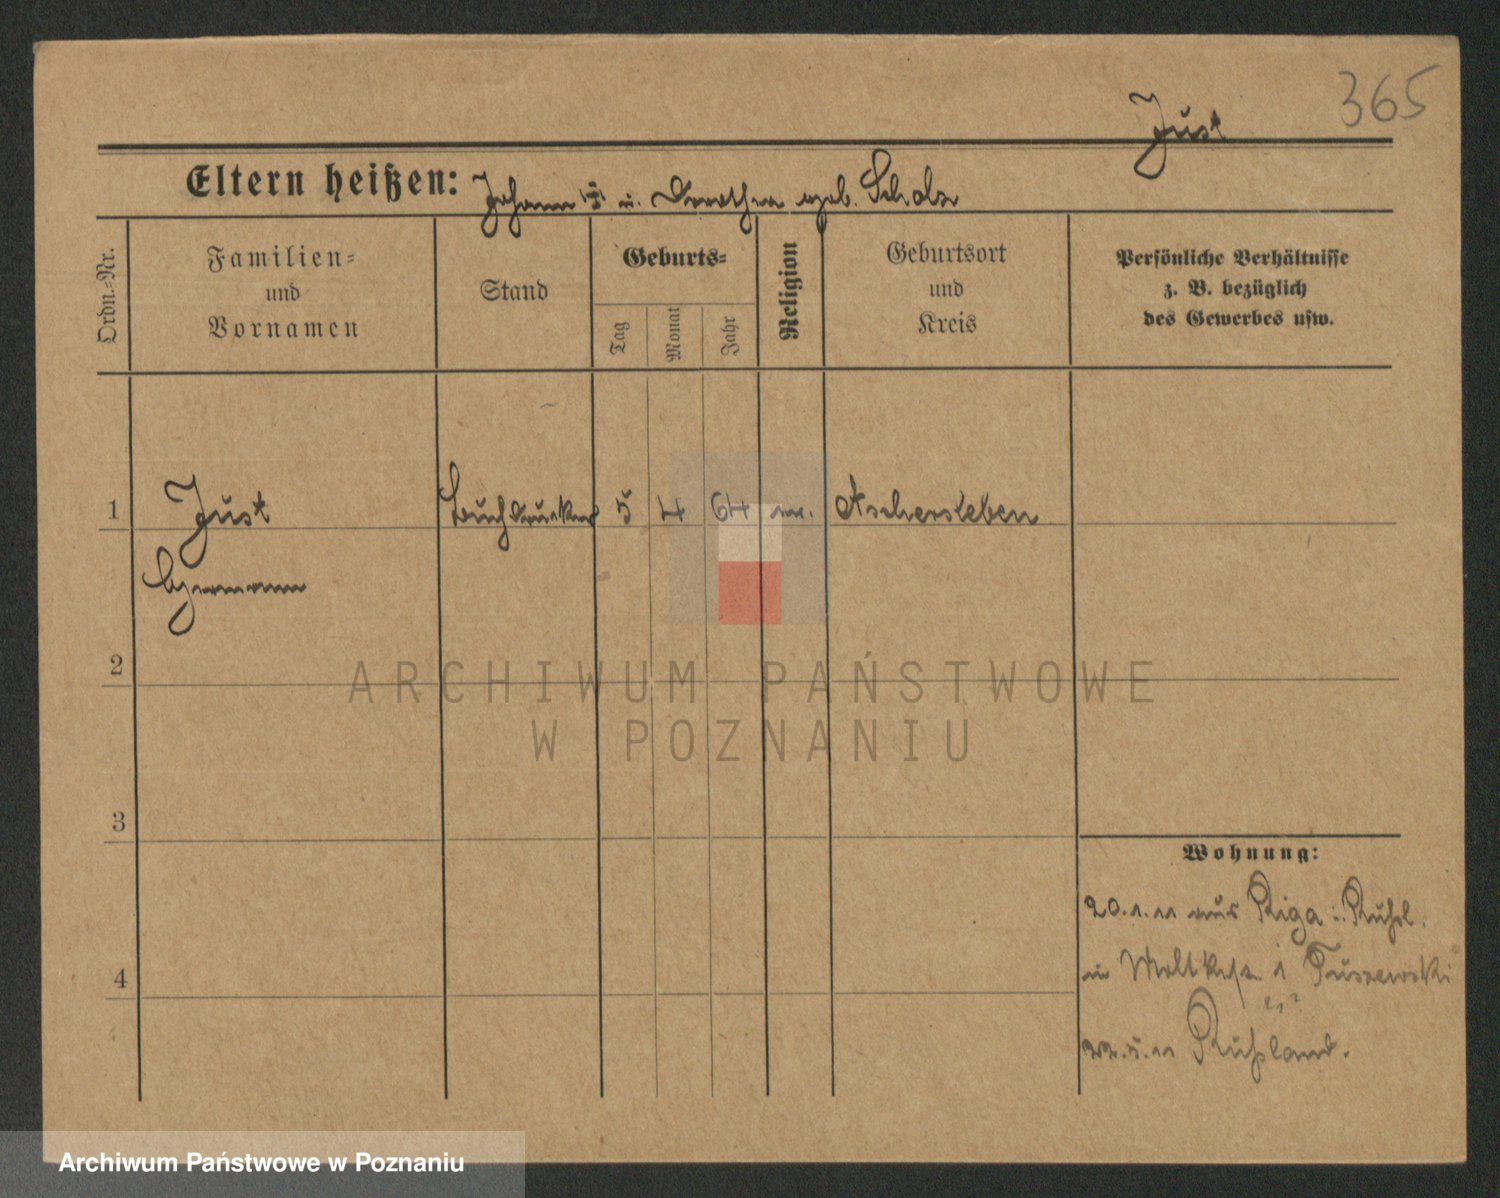 365
Just
Eltern heißen: Johann u. Dorothea geb. Scholz
Ordn.-Nr.
Familien-
und
Vornamen
Stand
Geburts-
Tag
Monat
Jahr
Religion
Geburtsort
und
Kreis
Persönliche Verhältnisse
z. B. bezüglich
des Gewerbes usw.
1 Just Buchdrucker 5 4 64 ev. Aschersleben
Hermann
2
ARCHIWUM PAŃSTWOWE
W POZNANIU
3
4
Wohnung:
20.1.11 aus Riga i. Rußl.
in Moltkestr. 1 Tuszewski
22.5.11 Rußland.
Archiwum Państwowe w Poznaniu